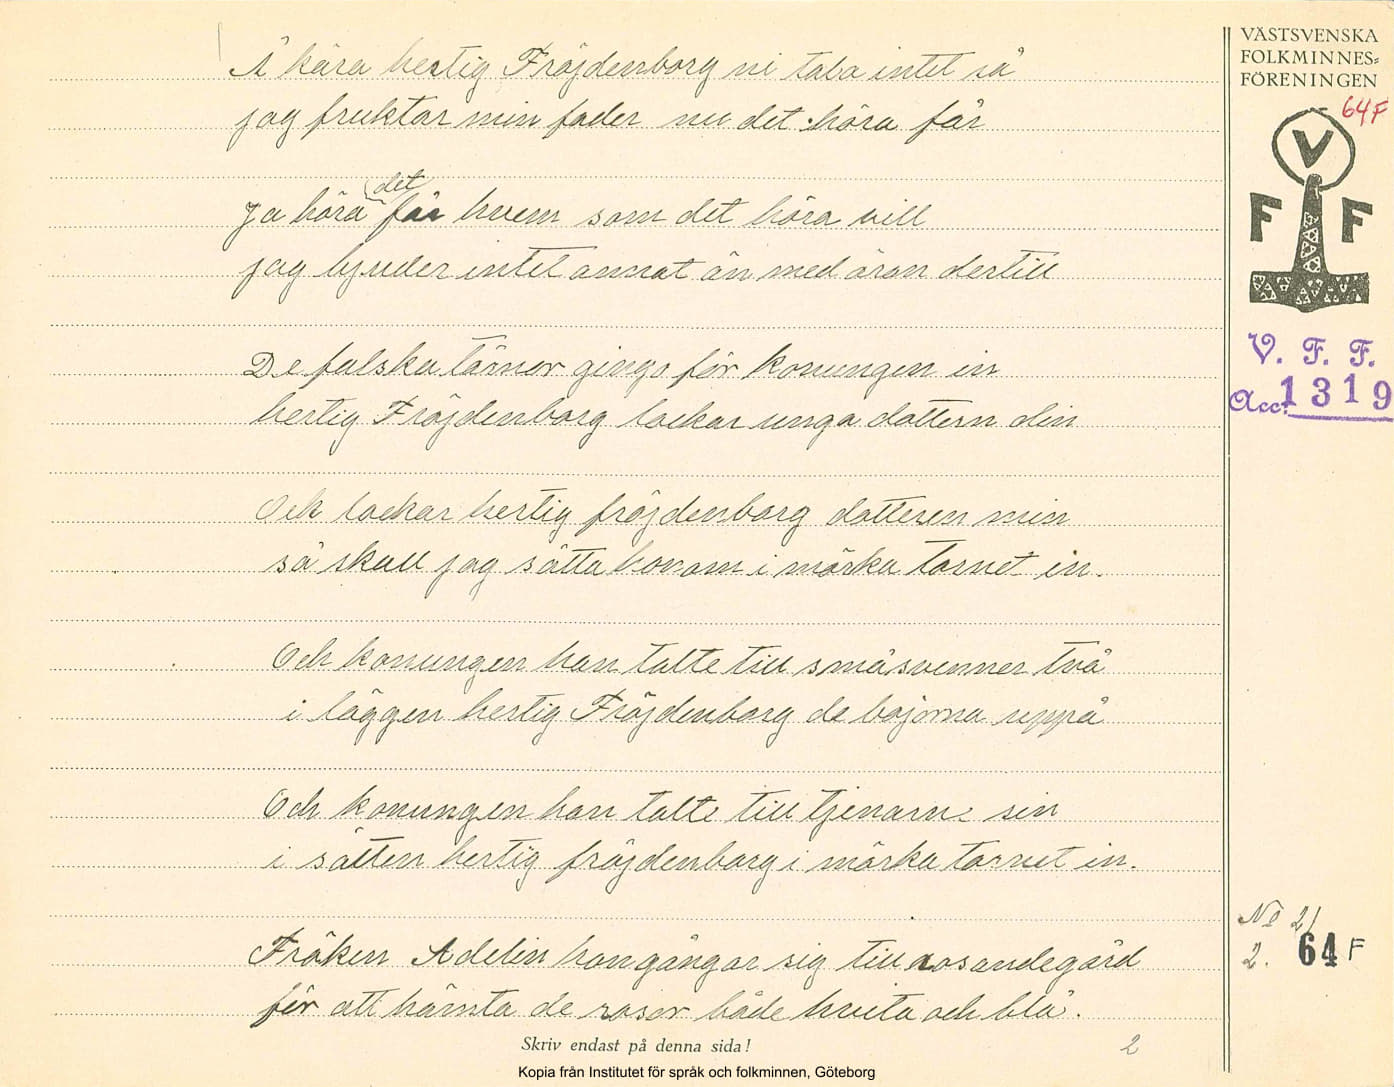 Å kära hertig Fröjdenborg ni tala intet så
jag fruktar min fader nu det höra får
det
Ja höra får hvem som det höra vill
jag bjuder intet annat än med äran dertill
De falska tärnor gingo för konungen in
hertig Fröjdenborg lockar unga dottern din
Och lockar hertig fröjdenborg dotteren min
så skall jag sätta honom i mörka tornet in.
Och konungen han talte till småsvenner två
i läggen hertig Fröjdenborg de bojorna uppå
Och konungen han talte till tjenarne sin
i sätten hertig fröjdenborg i mörka tornet in.
Fröken Adelin hon gångar sig till rosandegård
för att hämta de rosor både hvita och blå.
Skriv endast på denna sida!
2
Kopia från Institutet för språk och folkminnen, Göteborg
VÄSTSVENSKA
FOLKMINNES-
FÖRENINGEN
64F
V
F F
V. F. F.
Acc. 1319
No 21
2. 64 F